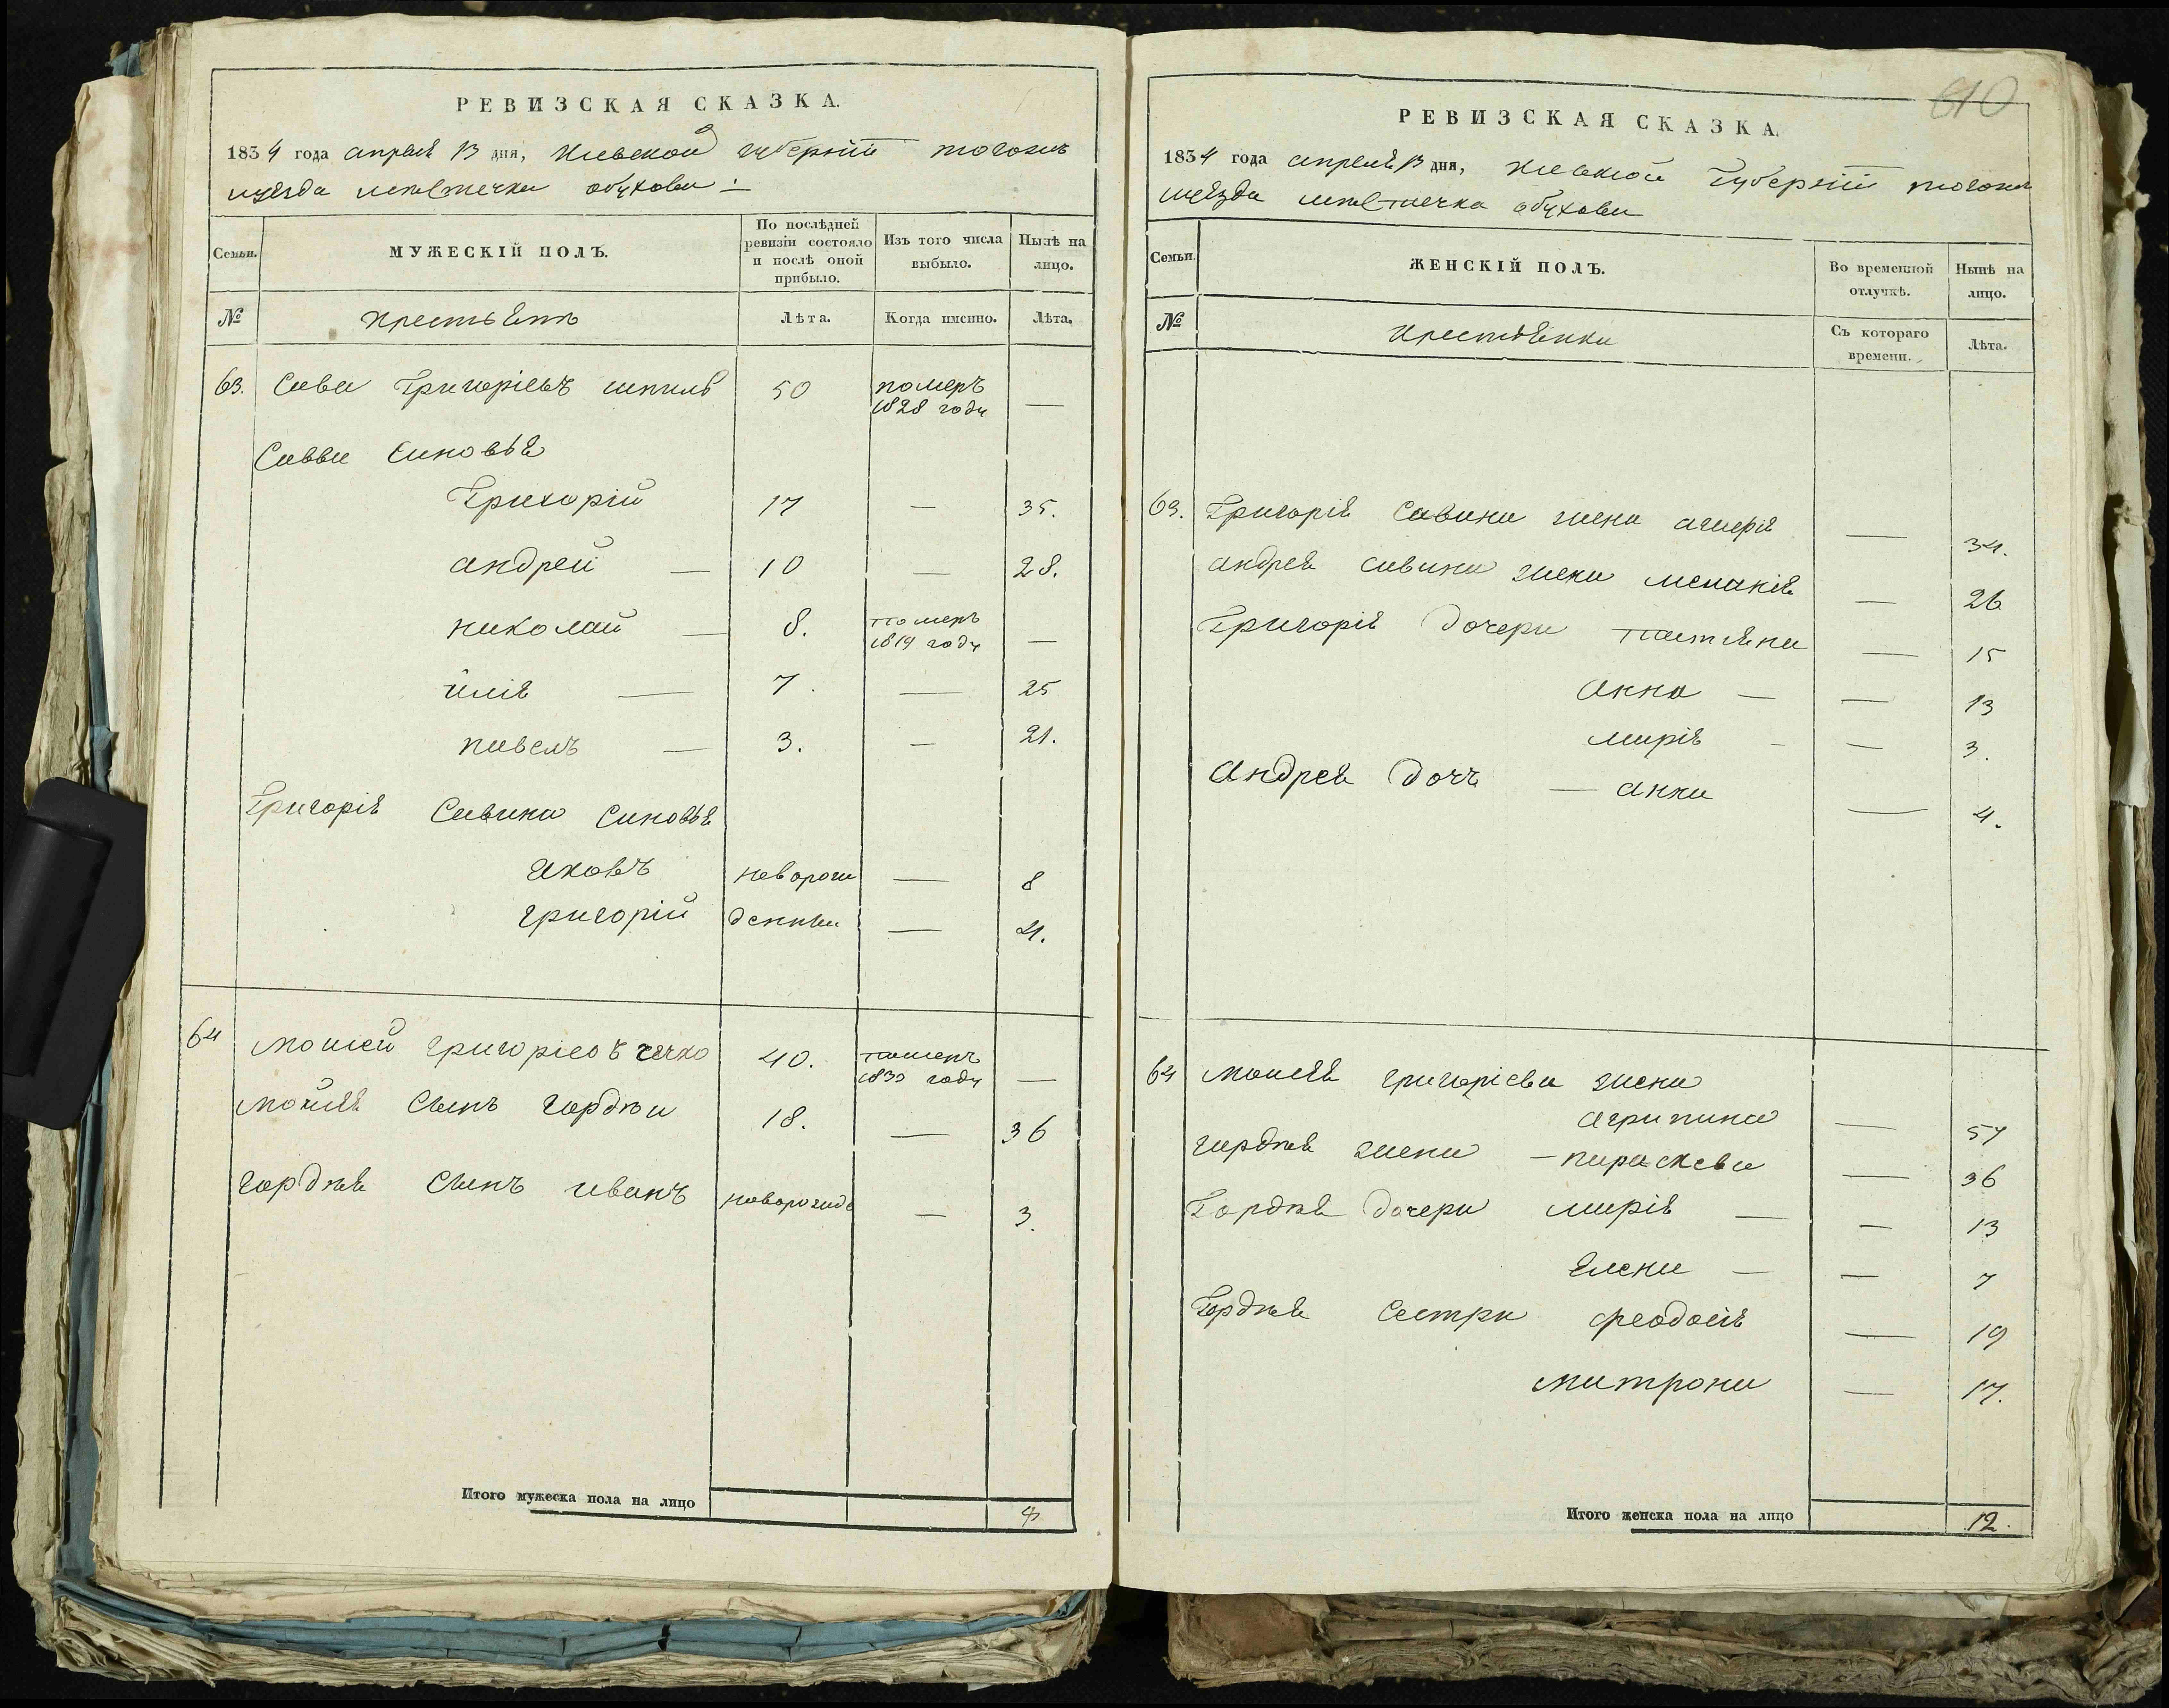 РЕВИЗСКАЯ СКАЗКА.
1834 года апреля 13 дня, Киевской губернiи тогожъ
уезда местечка обухова
Семьи.
МУЖЕСКІЙ ПОЛЪ.
По послѣдней ревизіи состояло и послѣ оной прибыло.
Изъ того числа выбыло.
Нынѣ на лицо.
№
Крестьянъ
Лѣта.
Когда именно.
Лѣта.
63. Сава Григоріевъ шпиль 50 померъ 1828 года —
Савви Синовья
Григорій 17 — 35.
андрей — 10 — 28.
николай — 8. померъ 1819 году —
илія — 7. — 25
павелъ — 3. — 21.
Григорія Савина Синовья
Яковъ новорож — 8
григорій денные — 4.
64 Моисей григоріевъ 40. померъ 1830 году —
Моисея Сынъ гордѣй 18. — 36
гордѣя Сынъ иванъ новорожде — 3.
Итого мужеска пола на лицо
610
РЕВИЗСКАЯ СКАЗКА.
1834 года апреля 13 дня, Киевской Губернiи тогожъ
уезда местечка обухова
Семьи.
ЖЕНСКІЙ ПОЛЪ.
Во временной отлучкѣ.
Нынѣ на лицо.
№
Крестьянки
Съ котораго времени.
Лѣта.
63. Григорія Савина жена — 34.
андрея савина жена меланія — 26
Григорія Дочери татяна — 15
Анна — — 13
марія — — 3.
Андрея Дочъ — анна — 4.
64 Моисея григоріева жена
агрипина — 57
гордѣя жена — параскева — 36
Гордѣя дочери марія — — 13
Елена — — 7
Гордѣя Сестри феодосія — 19
матрона — 17.
Итого женска пола на лицо 12.